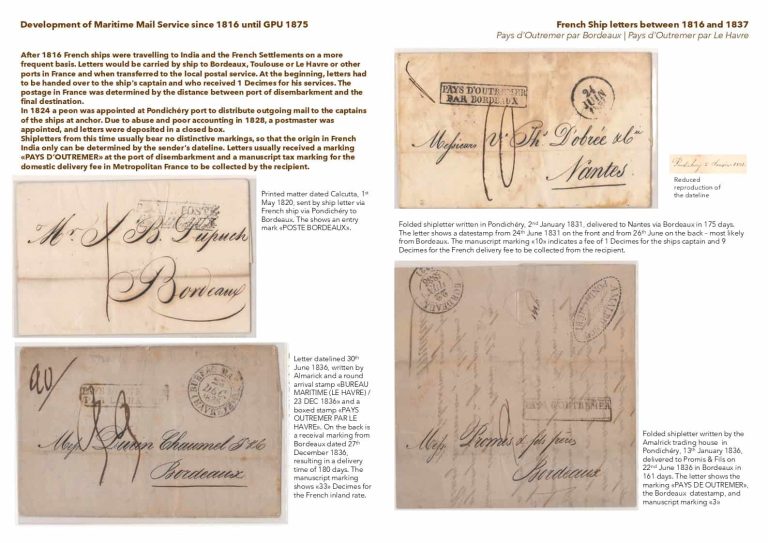 Development of Maritime Mail Service since 1816 until GPU 1875
French Ship letters between 1816 and 1837
Pays d'Outremer par Bordeaux | Pays d'Outremer par Le Havre
After 1816 French ships were travelling to India and the French Settlements on a more
frequent basis. Letters would be carried by ship to Bordeaux, Toulouse or Le Havre or other
ports in France and when transferred to the local postal service. At the beginning, letters had
to be handed over to the ship's captain and who received 1 Decimes for his services. The
postage in France was determined by the distance between port of disembarkment and the
final destination.
In 1824 a peon was appointed at Pondichéry port to distribute outgoing mail to the captains
of the ships at anchor. Due to abuse and poor accounting in 1828, a postmaster was
appointed, and letters were deposited in a closed box.
Shipletters from this time usually bear no distinctive markings, so that the origin in French
India only can be determined by the sender's dateline. Letters usually received a marking
«PAYS D'OUTREMER» at the port of disembarkment and a manuscript tax marking for the
domestic delivery fee in Metropolitan France to be collected by the recipient.
POSTE
Mr. J. B. Dupuch
Bordeaux
Printed matter dated Calcutta, 1st
May 1820, sent by ship letter via
French ship via Pondichéry to
Bordeaux. The shows an entry
mark «POSTE BORDEAUX».
PAYS D'OUTREMER
PAR BORDEAUX
24
JUIN
10
Messieurs Ve Ths Dobrée &
Nantes
Reduced
reproduction of
the dateline
Folded shipletter written in Pondichéry, 2nd January 1831, delivered to Nantes via Bordeaux in 175 days.
The letter shows a datestamp from 24th June 1831 on the front and from 26th June on the back – most likely
from Bordeaux. The manuscript marking «10» indicates a fee of 1 Decimes for the ships captain and 9
Decimes for the French delivery fee to be collected from the recipient.
33
Chaumel
Bordeaux
Letter datelined 30th
June 1836, written by
Almarick and a round
arrival stamp «BUREAU
MARITIME (LE HAVRE) /
23 DEC 1836» and a
boxed stamp «PAYS
OUTREMER PAR LE
HAVRE». On the back is
a receival marking from
Bordeaux dated 27th
December 1836,
resulting in a delivery
time of 180 days. The
manuscript marking
shows «33» Decimes for
the French inland rate.
BORDEAUX
PAYS D'OUTREMER
Promis & fils frères
Bordeaux
Folded shipletter written by the
Amalrick trading house in
Pondichéry, 13th January 1836,
delivered to Promis & Fils on
22nd June 1836 in Bordeaux in
161 days. The letter shows the
marking «PAYS DE OUTREMER»,
the Bordeaux datestamp, and
manuscript marking «3»